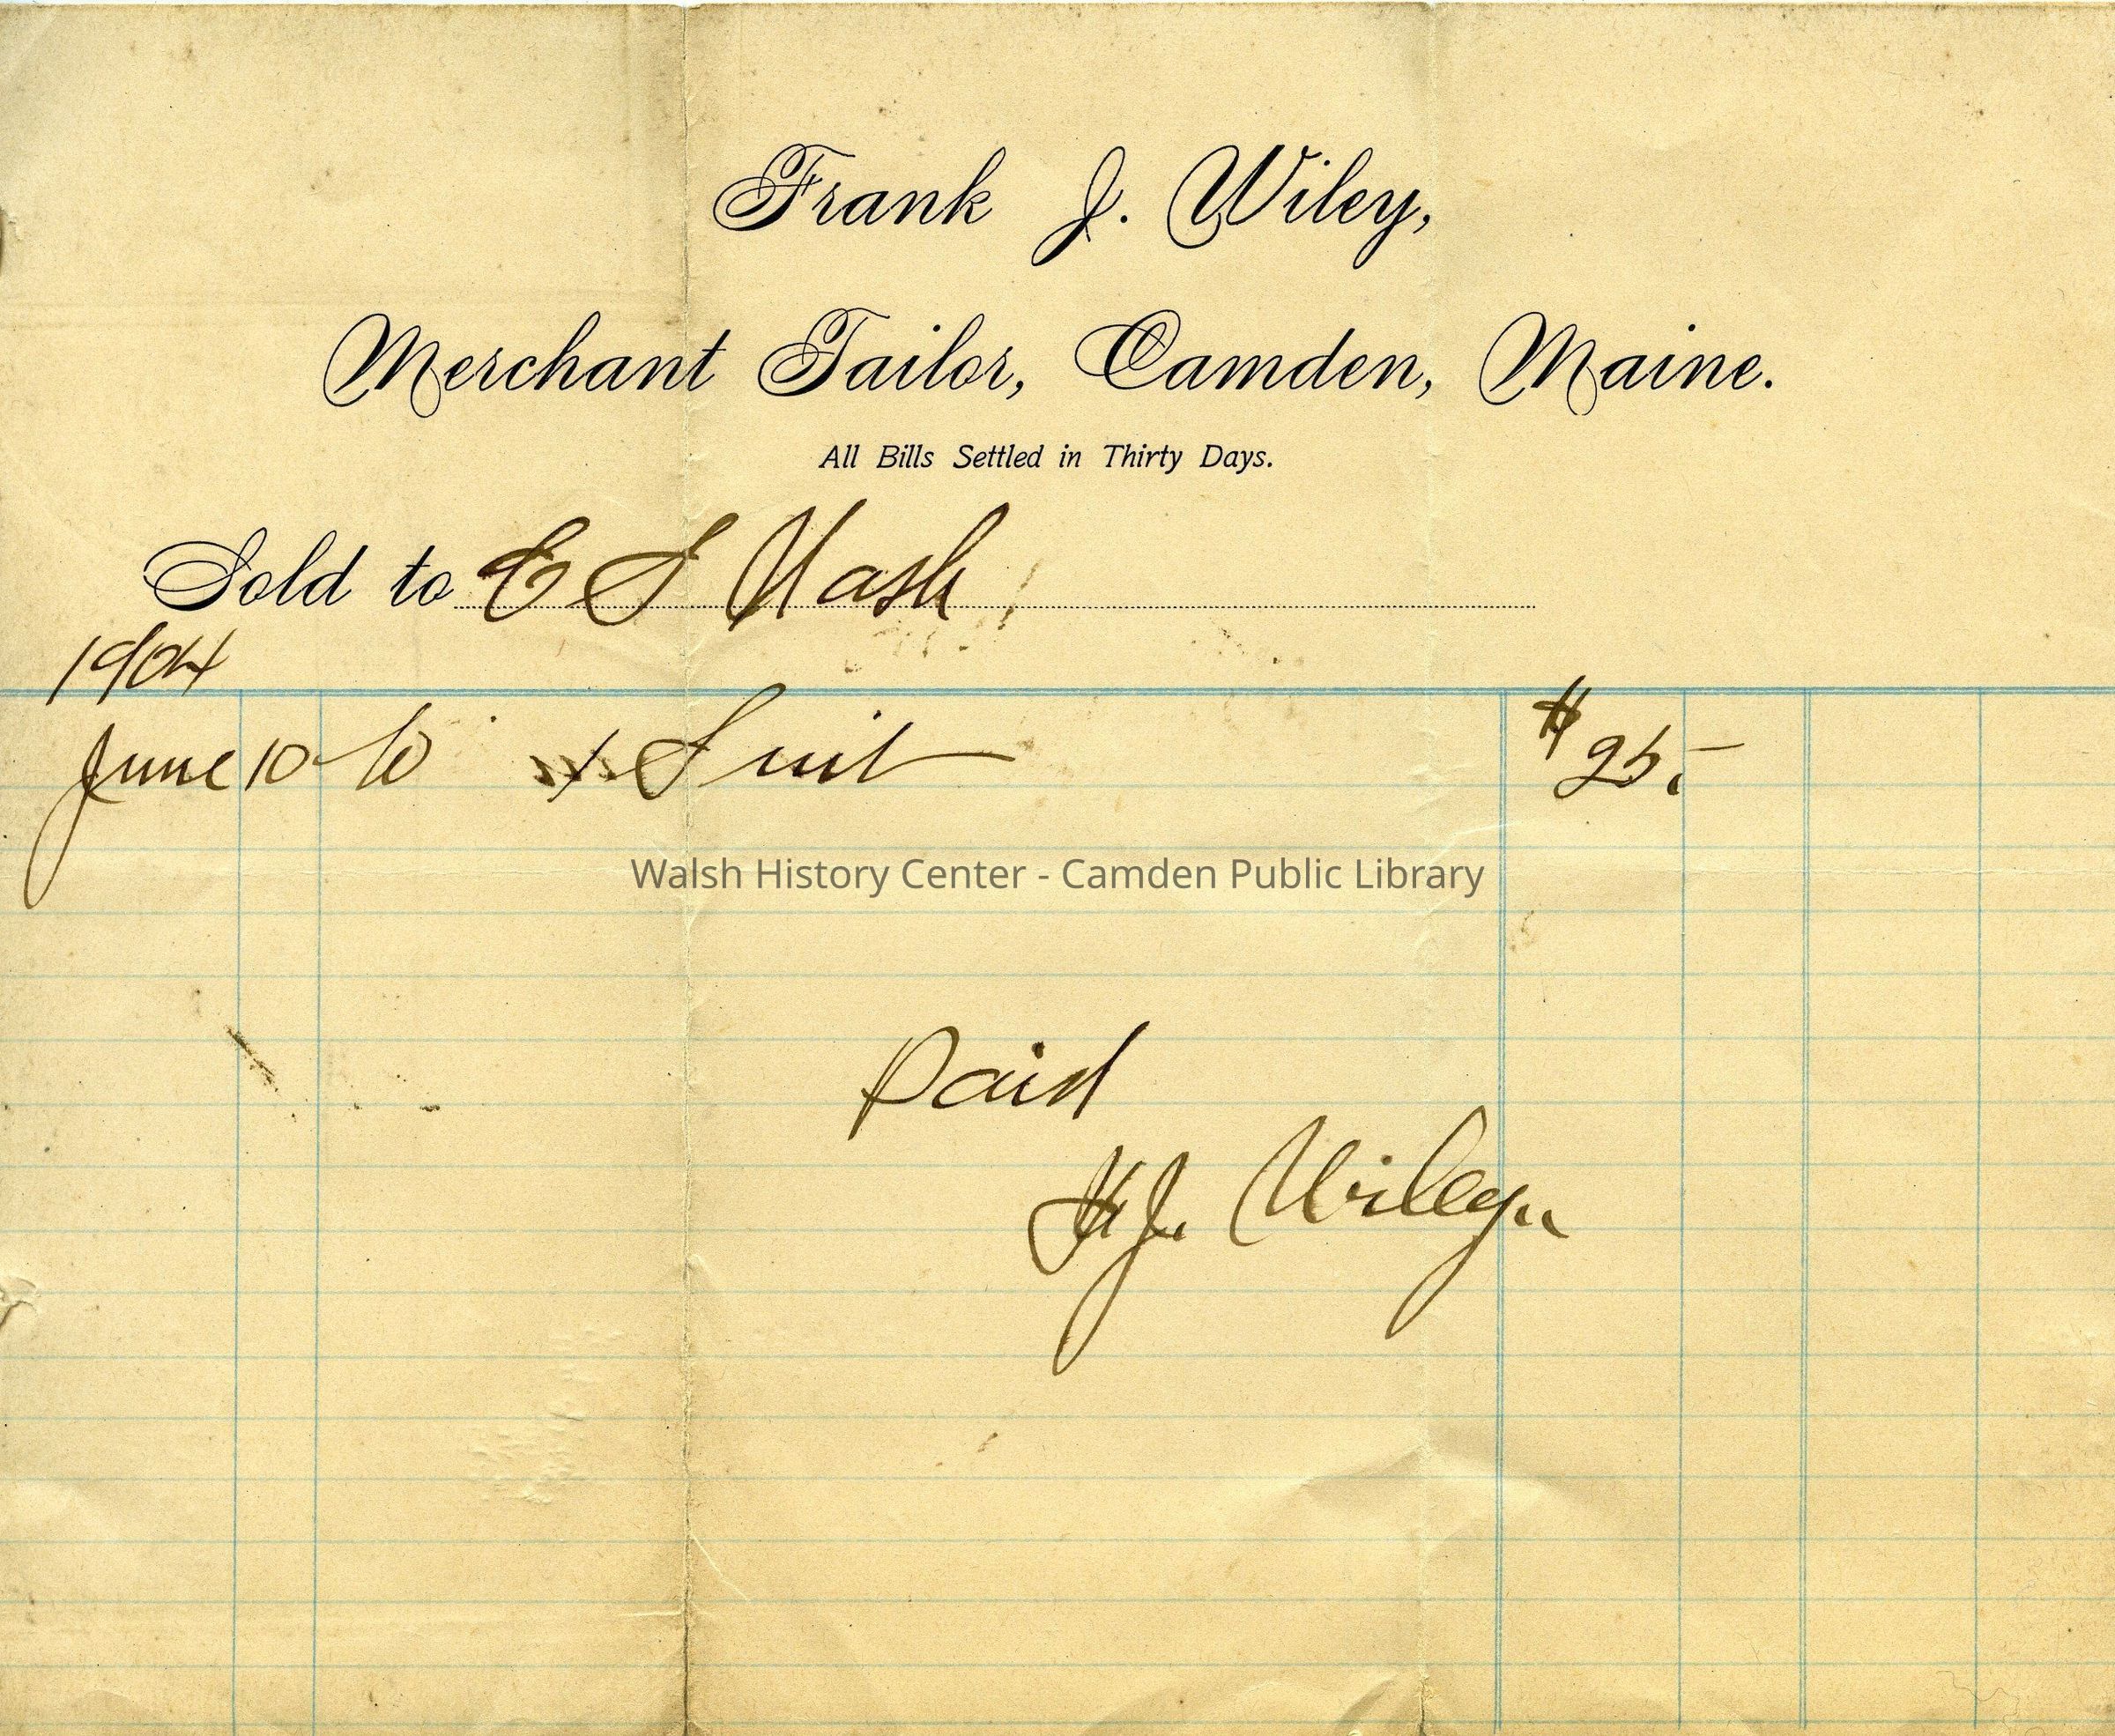 Frank J. Wiley,
Merchant Tailor, Camden, Maine.
All Bills Settled in Thirty Days.
Sold to E S Nash
1904
June 10 to 1 Suit $25.-
Walsh History Center - Camden Public Library
Paid
F.J. Wiley..